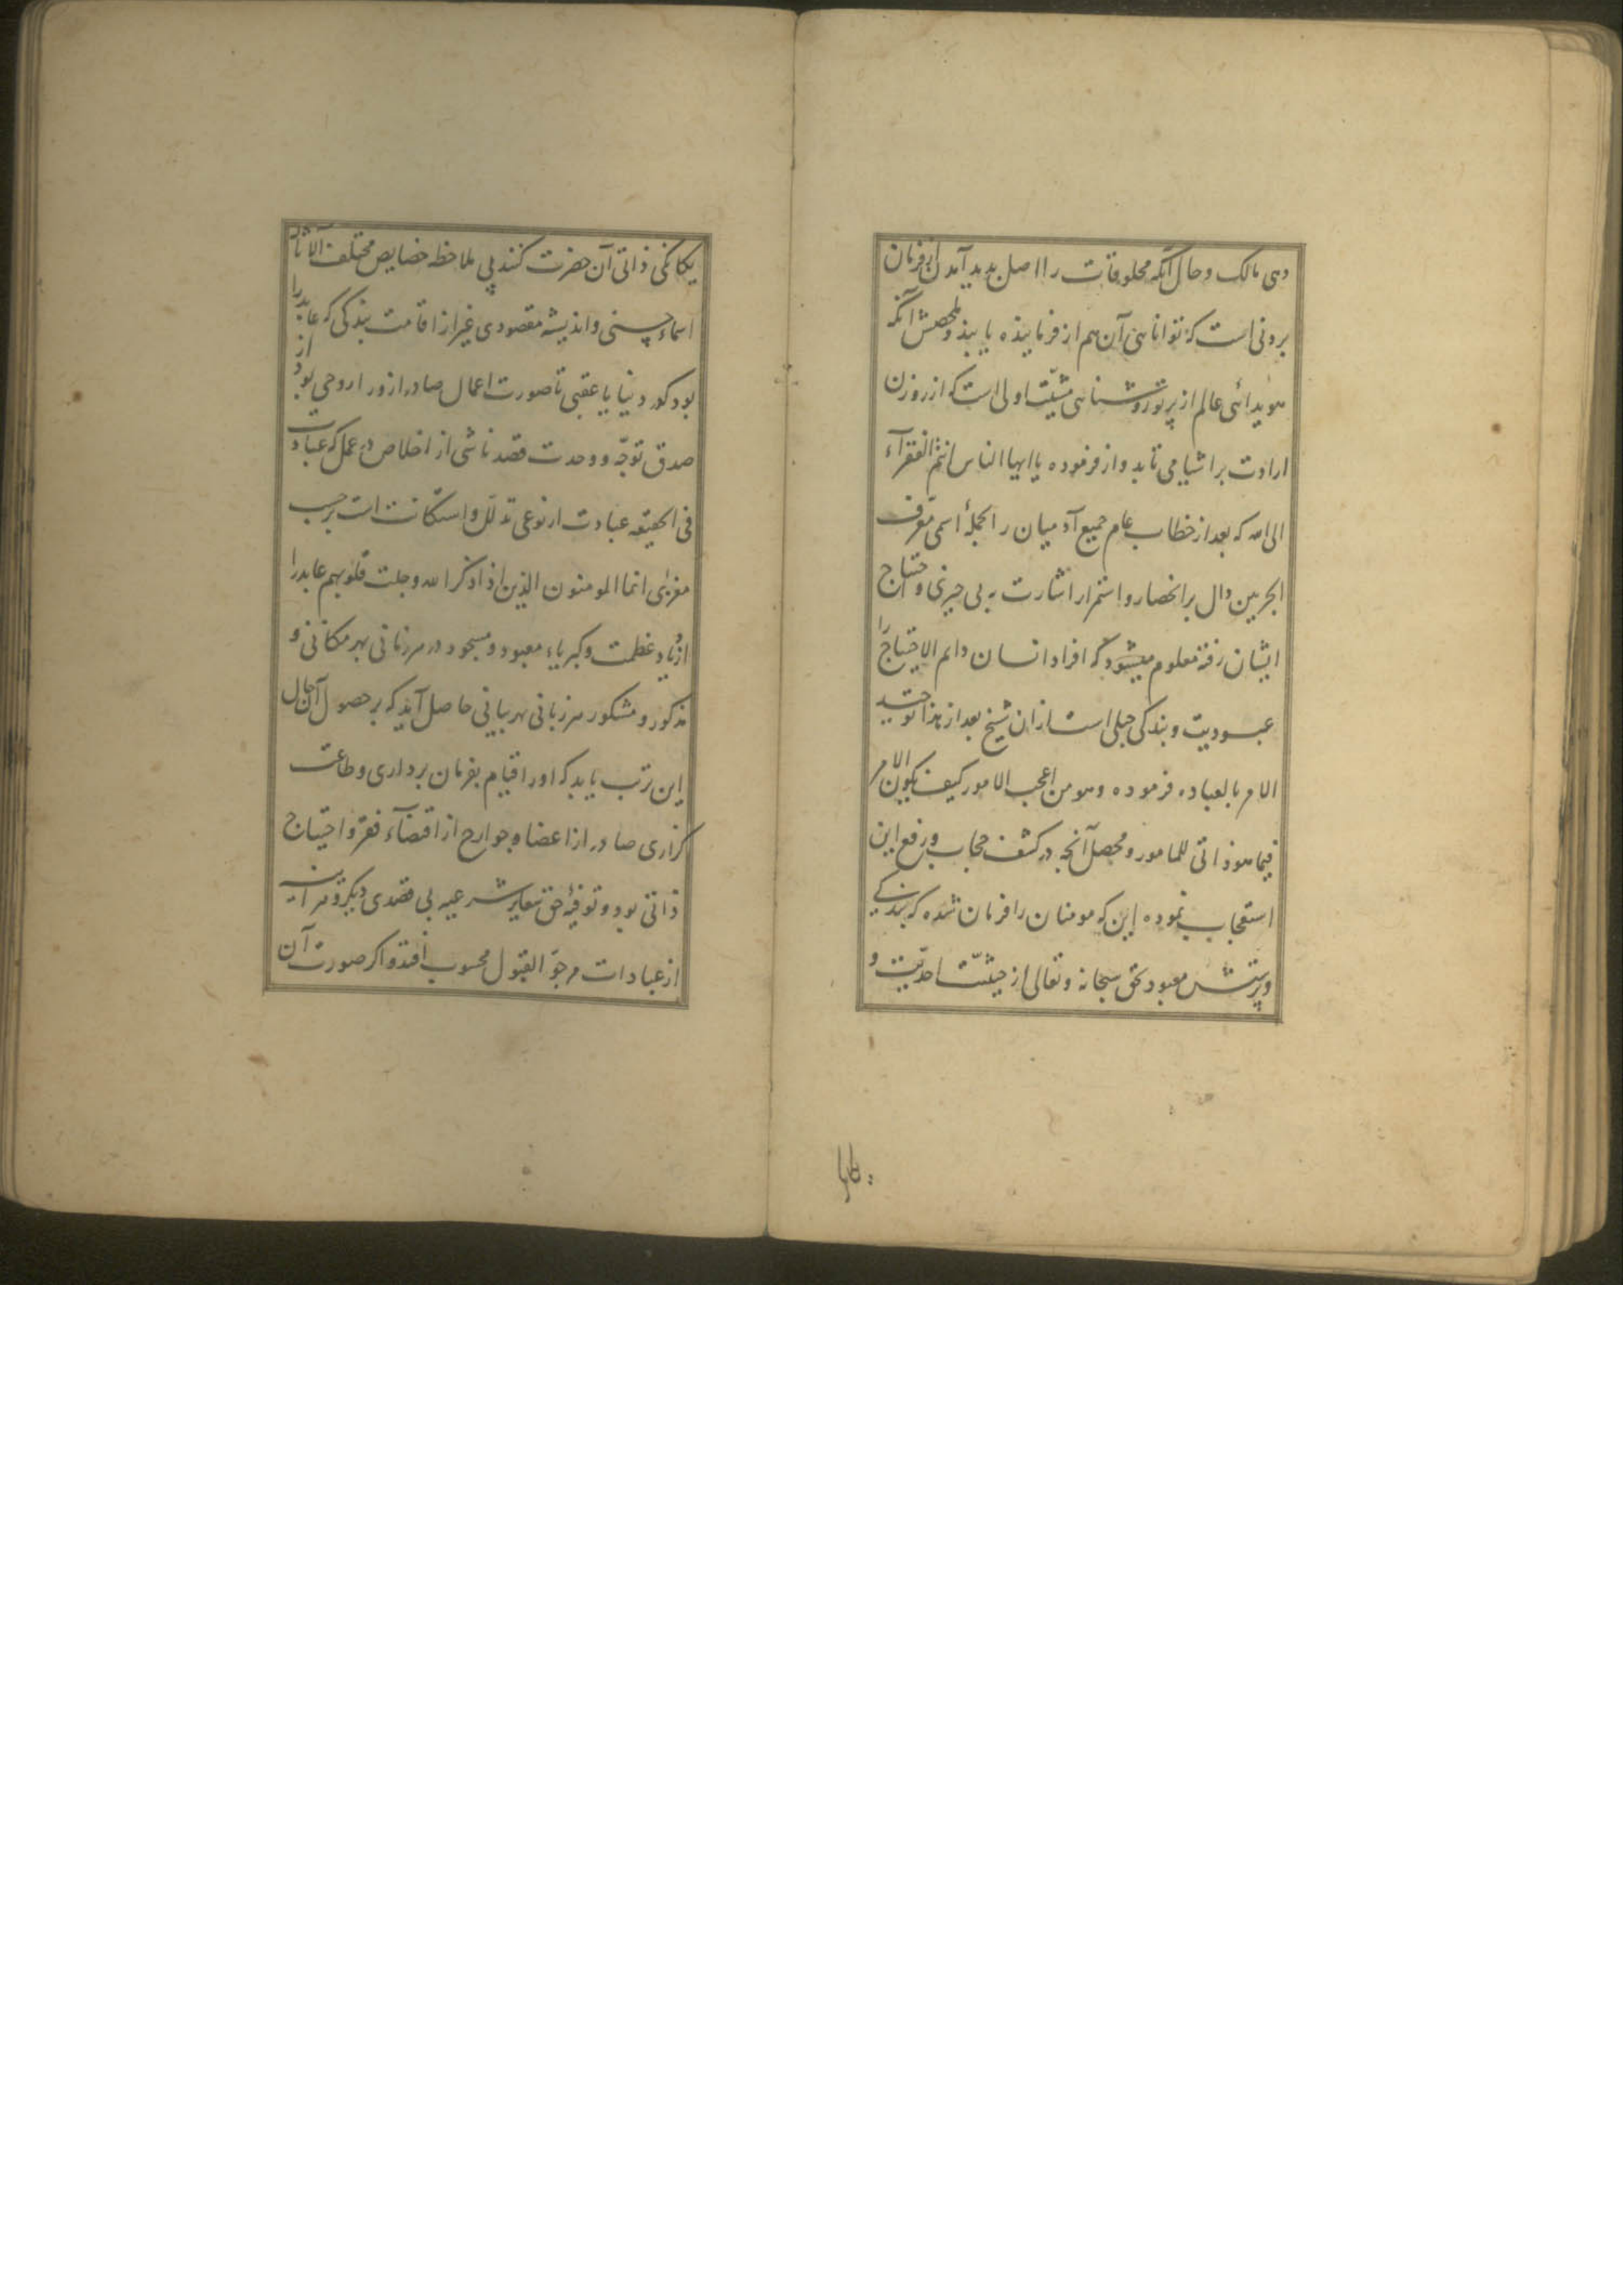 دهی مالک و حال آنکه مخلوقات را اصل پدید آمدن از فرمان
برونی است که توانائی آن هم از فرماینده یابند و ملخصش آنکه
هویدائی عالم از پرتو روشنائی مشیّت اولی است که از روزن
ارادت بر اشیا می تابد و از فرموده یا ایها الناس انتم الفقرآء
الی الله که بعد از خطاب عام جمیع آدمیان را بجملهٔ اسمی معرف
الجزیین دال بر انحصار و استمرار اشارت به بی چیزی و احتیاج
ایشان رفته معلوم میشود که افراد انسان دایم الاحتیاج را
عبودیت و بندکی جبلی است ازان شیخ بعد از هذا توحید
الامر بالعباده فرموده و هو من اعجب الامور کیف یکون الامر
فیما هو ذاتی للمامور و محصل آنچه در کشف حجاب و رفع این
استعجاب نموده این که مومنان را فرمان شده که بندکی
و پرستش معبود بحق سبحانه و تعالی از حیثیّت احدیّت و
یکانکی ذاتی آن حضرت کنند بی ملاحظه خصایص مختلف الآثار
اسماء حسنی و اندیشه مقصودی غیر از اقامت بندکی که عابد را
بود در دنیا یا عقبی تا صورت اعمال صادره ازو را روحی بود از
صدق توجّه و وحدت قصد ناشی از اخلاص در عمل که عبادت
فی الحقیقه عبادت از نوعی تذلّل و استکانت است بر حسب
مغزی انما المومنون الذین اذا ذکر الله وجلت قلوبهم عابد را
از یاد عظمت و کبریاء معبود و مسجود در هر زمانی بهر مکانی و
مذکور و مشکور هر زبانی بهر بیانی حاصل آید که بر حصول آن حال
این ترتب یابد که او را قیام بفرمان برداری و طاعت
کزاری صادر از اعضا و جوارح از اقتضآء فقر و احتیاج
ذاتی بود و توفیهٔ حق شعایر شرعیه بی قصدی دیکر و هر آینه
از عبادات مرجوّ القبول محسوب افتد و اکر صورت آن